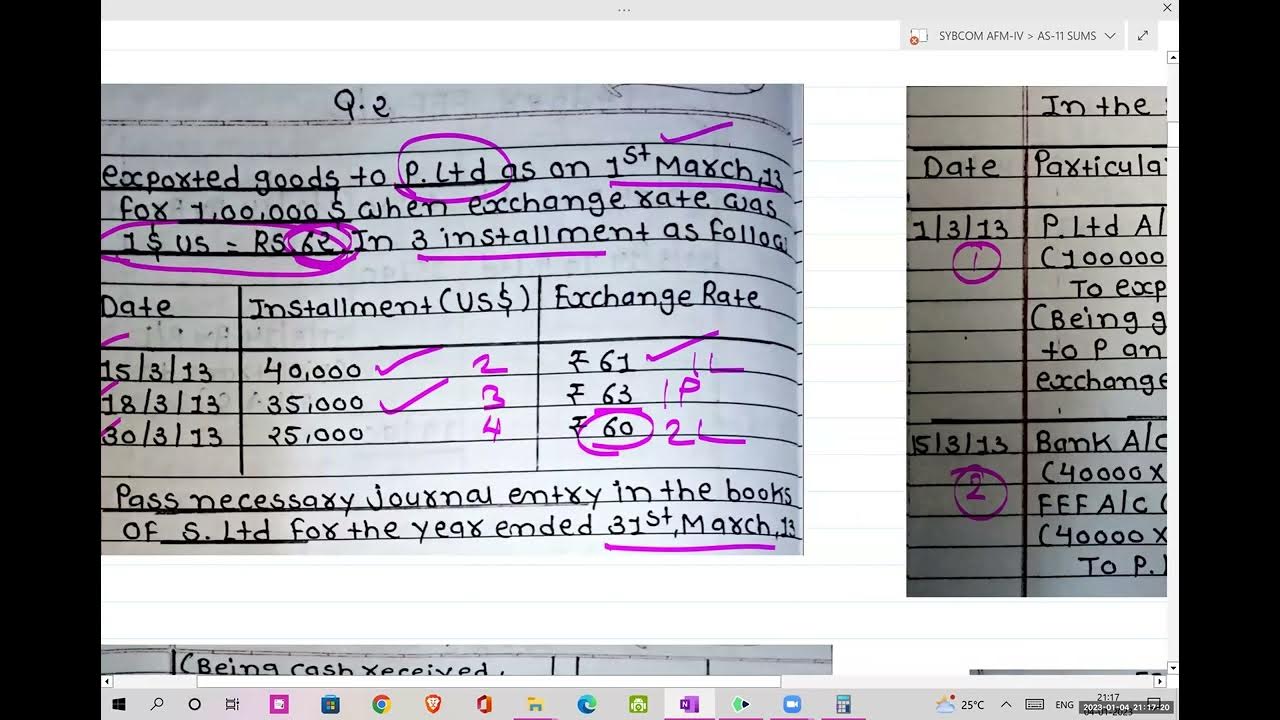 SYBCOM AFM-IV > AS-11 SUMS
Q.2
exported goods to P.Ltd as on 1st March,13
for 1,00,000 $ when exchange rate was
1$ US = RS 62. In 3 installment as follow
Date Installment (US$) Exchange Rate
15/3/13 40,000 2 ₹ 61 1L
18/3/13 35,000 3 ₹ 63 1P
30/3/13 25,000 4 ₹ 60 2L
Pass necessary journal entry in the books
OF S. Ltd for the year ended 31st, March, 13
In the
Date Particula
1/3/13 P.Ltd A/
1 (100000
To exp
(Being g
to P an
exchange
15/3/13 Bank A/c
2 (40000 X
FEF A/C (
(40000 X
To P.
(Being cash received
25°C
ENG
21:17
2023-01-04 21:17:20